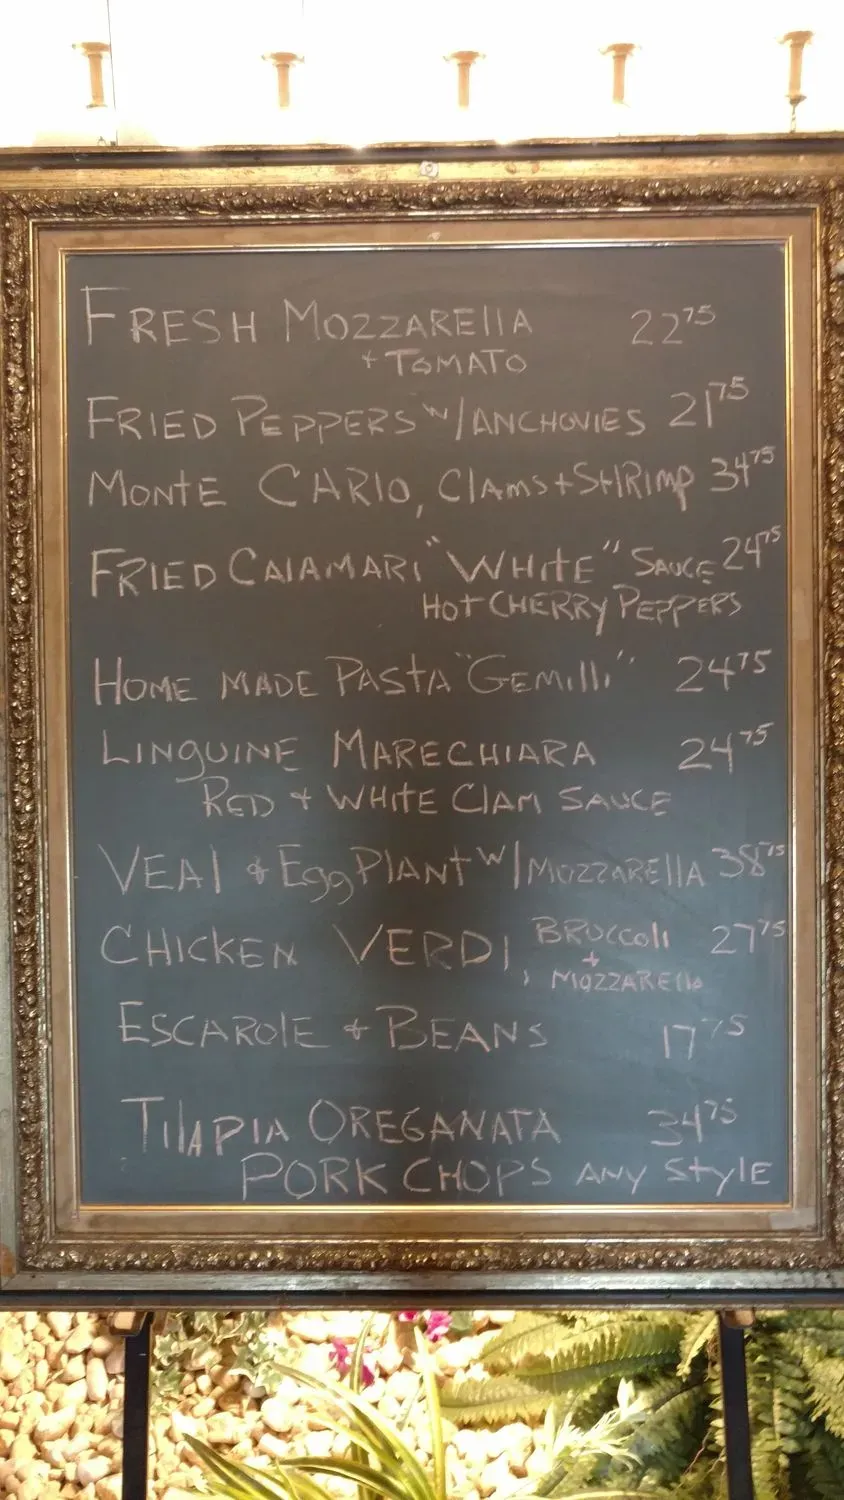 FRESH MOZZARELLA 22 75
+ TOMATO
FRIED PEPPERS W/ANCHOVIES 21 75
MONTE CARLO, CLAMS + SHRIMP 34 75
FRIED CALAMARI "WHITE" SAUCE 24 75
HOT CHERRY PEPPERS
HOME MADE PASTA "GEMILLI" 24 75
LINGUINE MARECHIARA 24 75
RED + WHITE CLAM SAUCE
VEAL & EggPLANT W/MOZZARELLA 38 75
CHICKEN VERDI, BROCCOLI 27 75
+
MOZZARELLA
ESCAROLE & BEANS 17 75
TILAPIA OREGANATA 34 75
PORK CHOPS ANY STYLE